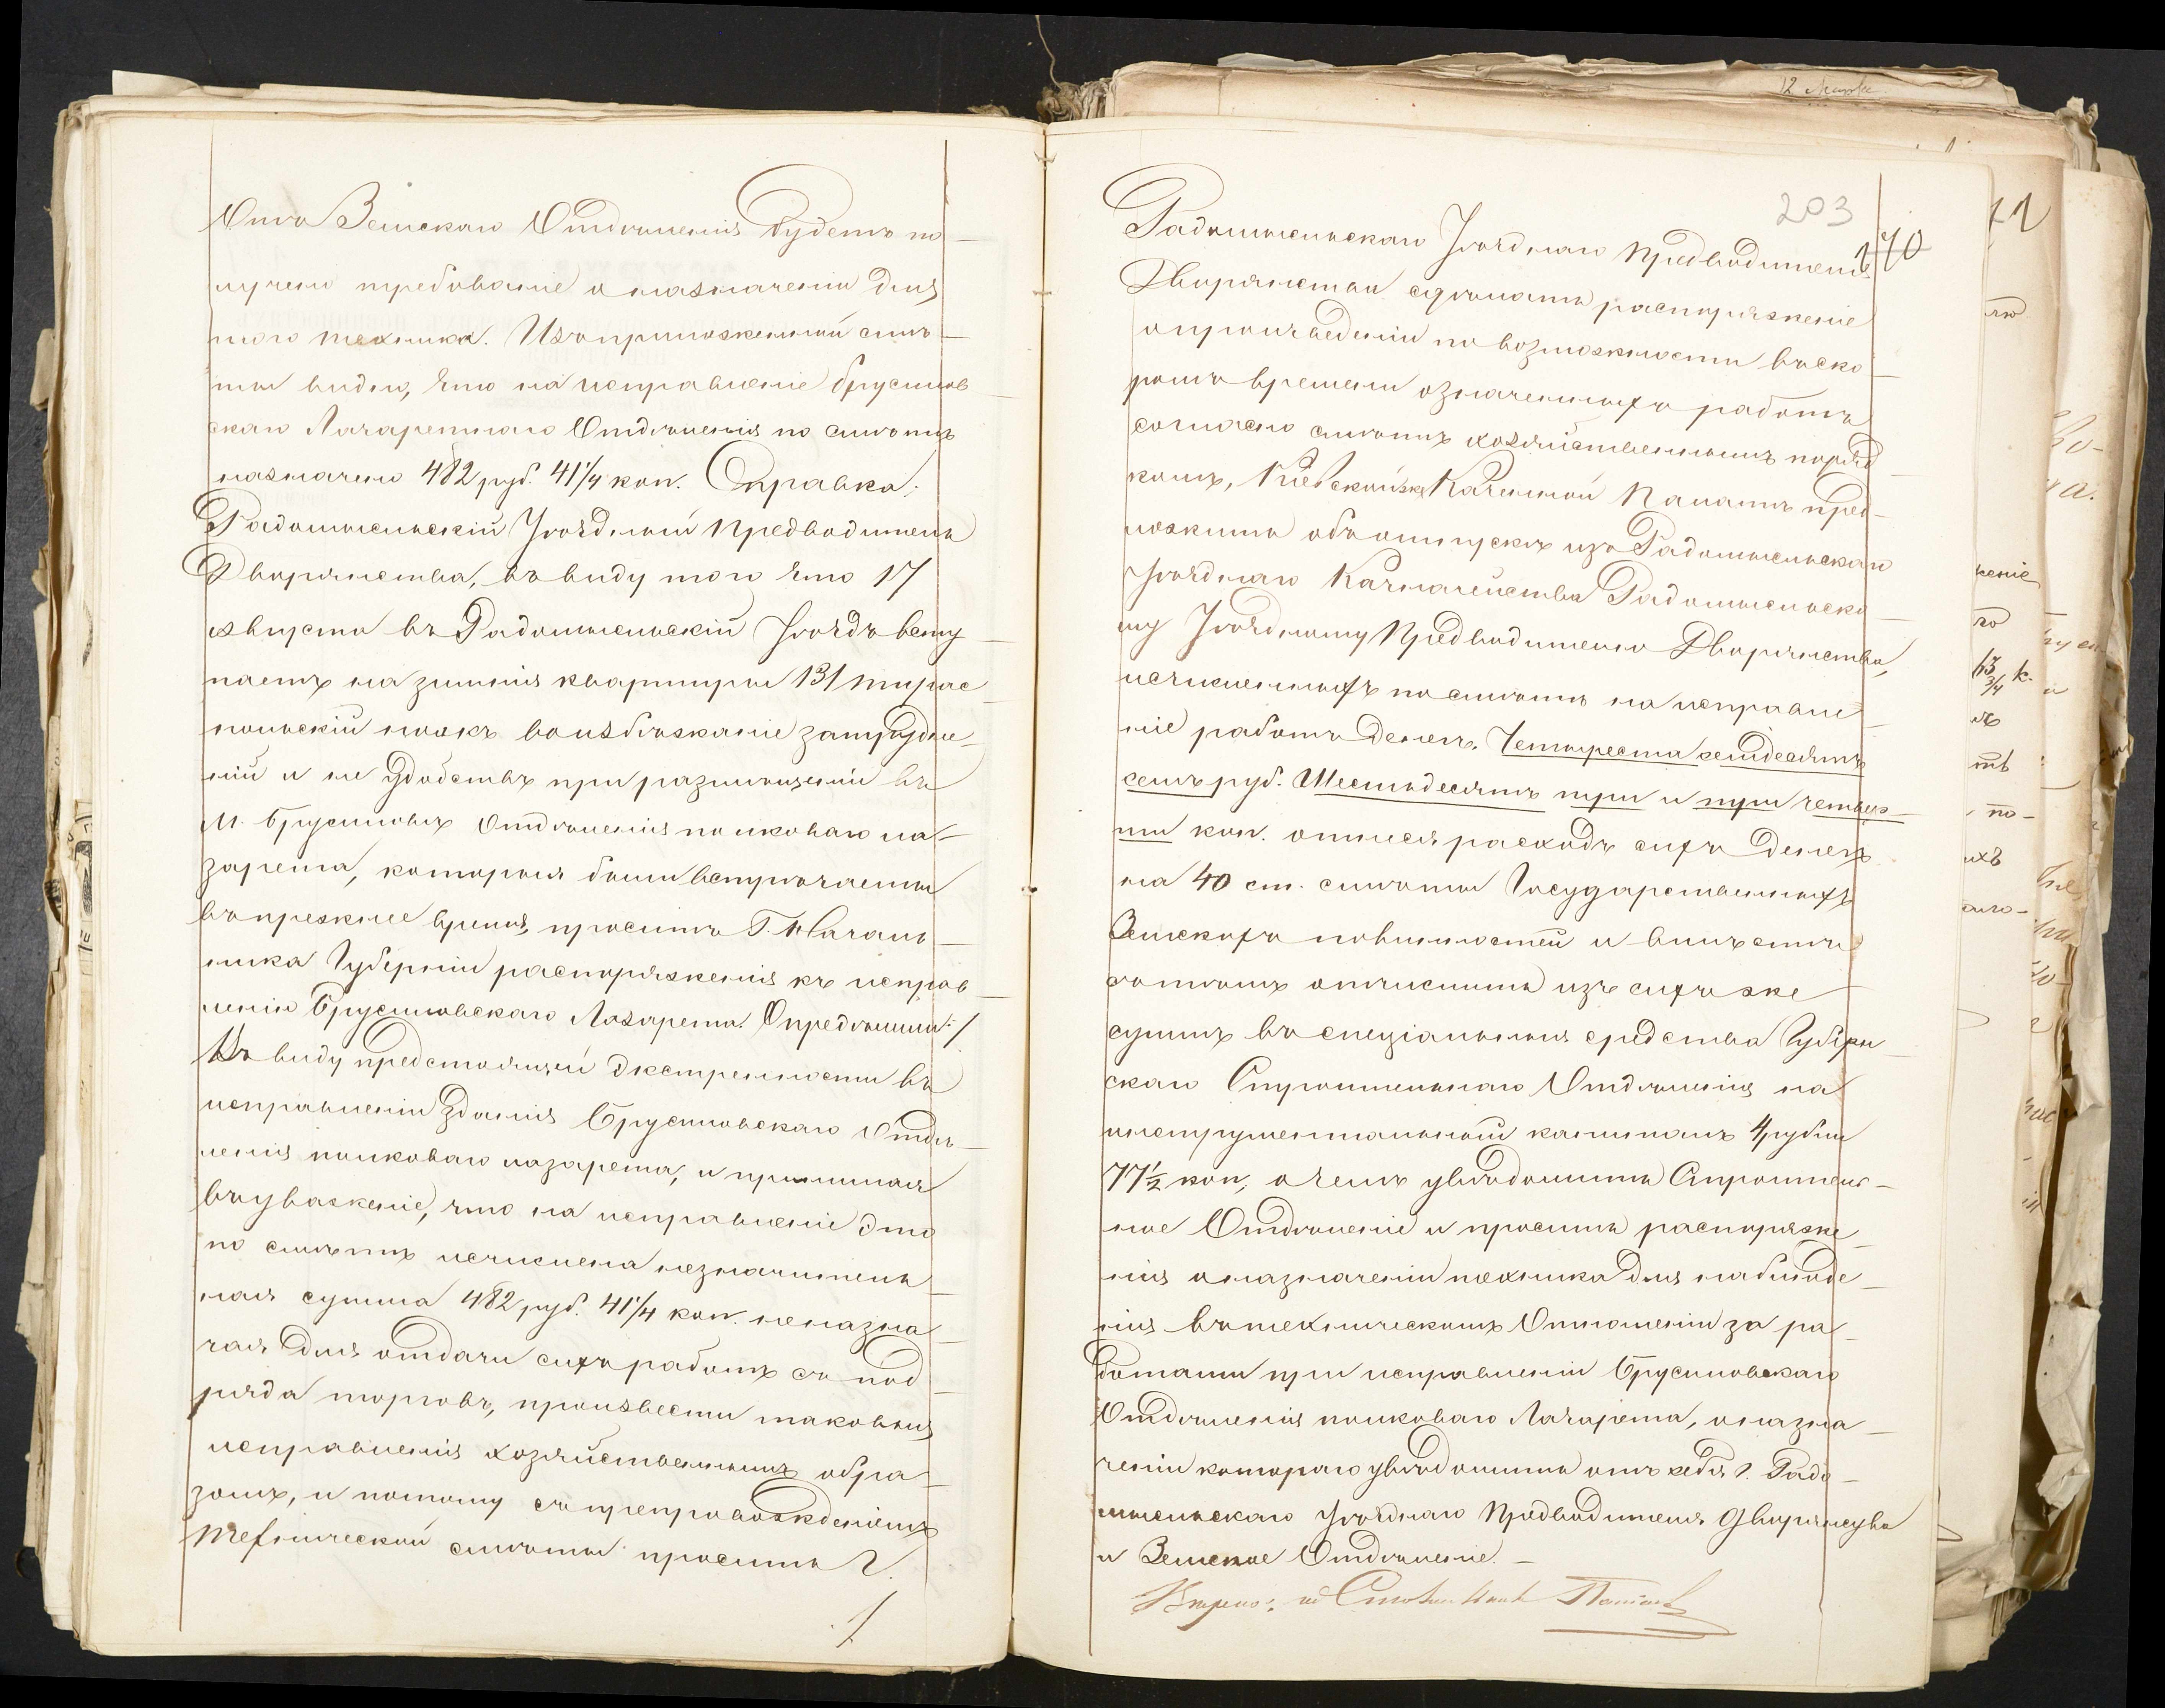 отъ Земскаго Отдѣленія будетъ по-
лучено требованіе о назначеніи для
того техника. Изъ приложенной смѣ-
ты видно, что на исправленіе Брусилов
скаго Лазаретнаго Отдѣленія по смѣтѣ
назначено 482 руб. 41 1/4 коп. Справка:
Радомысльскій Уѣздный Предводитель
Дворянства, въ виду того что 17
Августа въ Радомысльскій Уѣздъ всту-
паетъ на зимнія квартиры 131 Тирас
польскій полкъ во избѣжаніе затрудне-
ній и не удобствъ при размѣщеніи въ
М. Брусиловѣ Отдѣленія полковаго ла-
зарета, которыя были встрѣчаемы
въ прежнее время, проситъ Г. Началь-
ника Губерніи распоряженія къ исправ
ленію Брусиловскаго Лазарета. Опредѣлили:
Въ виду предстоящей экстренности въ
исправленіи зданія Брусиловскаго Отдѣ-
ленія полковаго лазарета, и принимая
въ уваженіе, что на исправленіе это
по смѣтѣ исчислена незначитель-
ная сумма 482 руб. 41 1/4 коп. неназна-
чая для отдачи сихъ работъ съ под-
ряда торговъ, произвести таковыя
исправленія хозяйственнымъ обра-
зомъ, и потому съ препровожденіемъ
технической смѣты просить Г.
203
270
Радомысльскаго Уѣзднаго Предводителя
Дворянства сдѣлать распоряженіе
о произведеніи по возможности въ ско-
ромъ времени означенныхъ работъ
согласно смѣтѣ хозяйственнымъ поряд-
комъ, Кіевской Казенной Палатѣ пред-
ложить объ отпускѣ изъ Радомысльскаго
Уѣзднаго Казначейства Радомысльско-
му Уѣздному Предводителю Дворянства,
исчисленныхъ по смѣтѣ на исправле-
ніе работъ денегъ, Четыреста семдесятъ
семь руб. Шестьдесятъ три и три четвер-
ти коп. отнеся расходъ сихъ денегъ
на 40 ст. смѣты Государственныхъ
Земскихъ повинностей и вмѣстѣ
съ тѣмъ отчислить изъ сихъ же
суммъ въ спеціальныя средства Губерн-
скаго Строительнаго Отдѣленія на
инструментальный капиталъ 4 рубли
77 1/2 коп, о чемъ увѣдомить Строитель-
ное Отдѣленіе и просить распоряже-
нія о назначеніи техника для наблюде-
нія въ техническомъ Отношеніи за ра-
ботами при исправленіи Брусиловскаго
Отдѣленія полковаго Лазарета, о назна-
ченіи котораго увѣдомить отъ себя Г. Радо-
мысльскаго Уѣзднаго Предводителя Дворянства
и Земское Отдѣленіе.
12 Марта